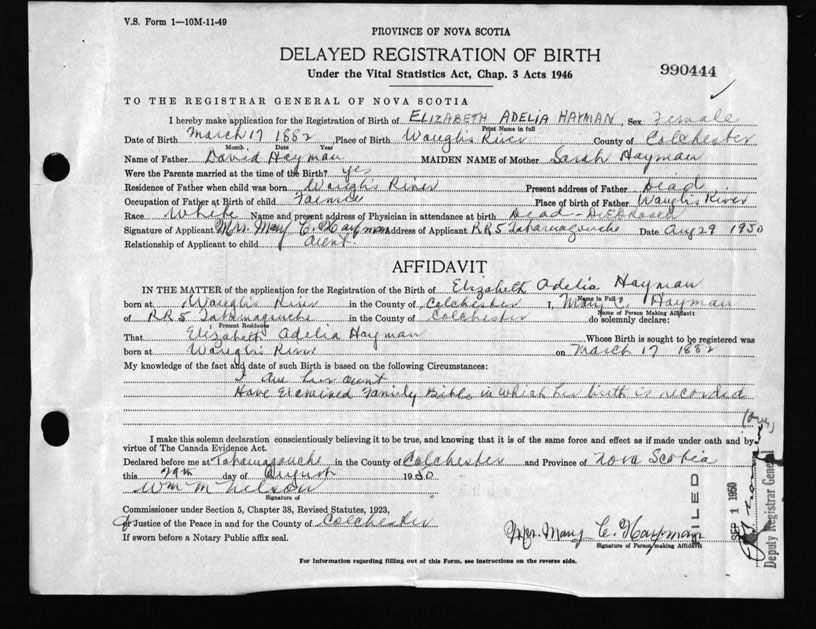 V.S. Form 1—10M-11-49
PROVINCE OF NOVA SCOTIA
DELAYED REGISTRATION OF BIRTH
Under the Vital Statistics Act, Chap. 3 Acts 1946
990444
TO THE REGISTRAR GENERAL OF NOVA SCOTIA
I hereby make application for the Registration of Birth of ELIZABETH ADELIA HAYMAN, Sex Female
Print Name in full
Date of Birth March 17 1882 Place of Birth Waugh's River County of Colchester
Month, Date Year
Name of Father David Hayman MAIDEN NAME of Mother Sarah Hayman
Were the Parents married at the time of the Birth? yes
Residence of Father when child was born Waugh's River Present address of Father Dead
Occupation of Father at birth of child Place of birth of Father Waugh's River
Race White Name and present address of Physician in attendance at birth Dead -
Signature of Applicant Mrs. Mary C. Hayman Address of Applicant RR5 Tatamagouche Date Aug 29 1950
Relationship of Applicant to child aunt
AFFIDAVIT
IN THE MATTER of the application for the Registration of the Birth of Elizabeth Adelia Hayman
Name in Full
born at Waugh's River in the County of Colchester I, Mary C. Hayman
Name of Person Making Affidavit
of RR5 Tatamagouche in the County of Colchester do solemnly declare:
Present Residence
That Elizabeth Adelia Hayman Whose Birth is sought to be registered was
born at Waugh's River on March 17 1882
My knowledge of the fact and date of such Birth is based on the following Circumstances:
I am her aunt
Have Examined Family Bible in which her birth is recorded
(over)
I make this solemn declaration conscientiously believing it to be true, and knowing that it is of the same force and effect as if made under oath and by virtue of The Canada Evidence Act.
Declared before me at Tatamagouche in the County of Colchester and Province of Nova Scotia
this 29th day of August 1950
Wm M Nelson
Signature of
Commissioner under Section 5, Chapter 38, Revised Statutes, 1923,
or Justice of the Peace in and for the County of Colchester
If sworn before a Notary Public affix seal.
Mrs. Mary C. Hayman
Signature of Person making Affidavit
FILED
SEP 1 1950
Deputy Registrar General
For Information regarding filling out of this Form, see instructions on the reverse side.